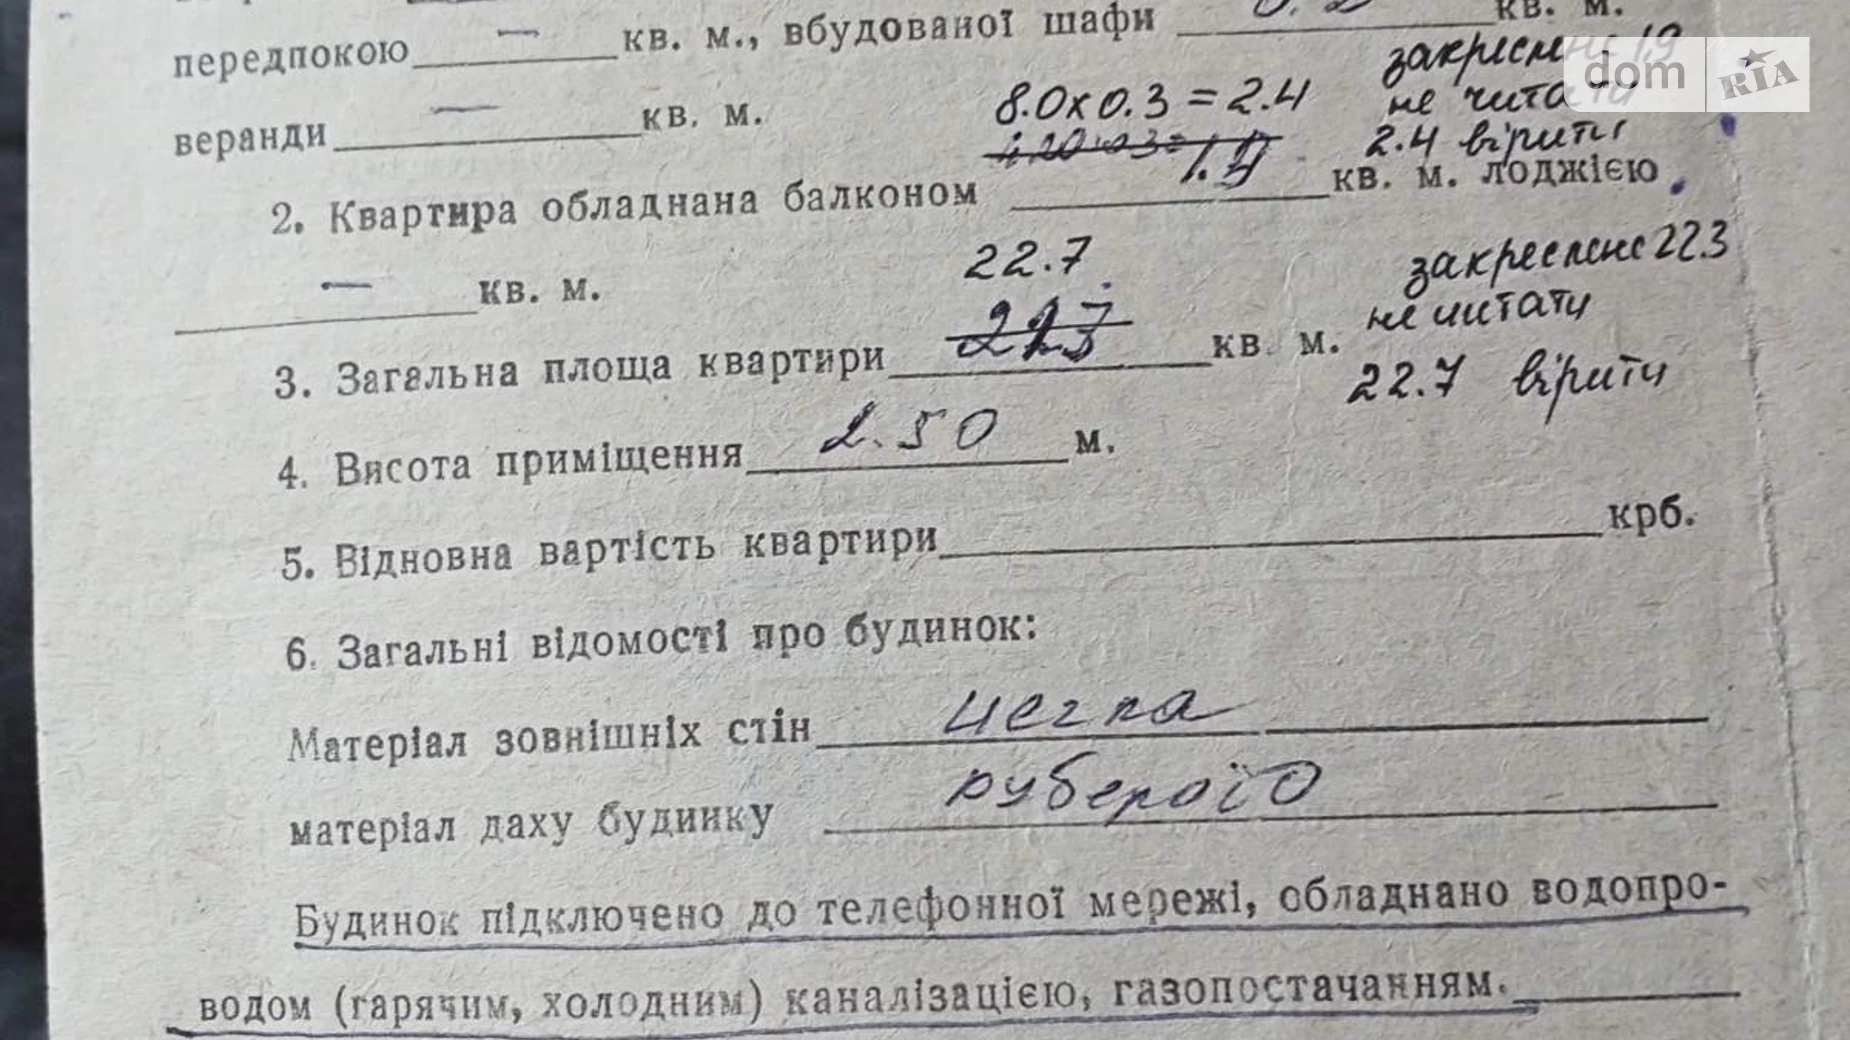 передпокою — кв. м., вбудованої шафи кв. м.
закреслене 1.9
dom RIA
веранди — кв. м.
8.0 х 0.3 = 2.4
не читати
1.9
2.4 вірити
2. Квартира обладнана балконом кв. м. лоджією
— кв. м.
22.7
закреслене 22.3
не читати
3. Загальна площа квартири 22.3 кв. м.
22.7 вірити
4. Висота приміщення 2.50 м.
5. Відновна вартість квартири крб.
6. Загальні відомості про будинок:
Матеріал зовнішніх стін цегла
матеріал даху будинку рубероїд
Будинок підключено до телефонної мережі, обладнано водопро-
водом (гарячим, холодним) каналізацією, газопостачанням.